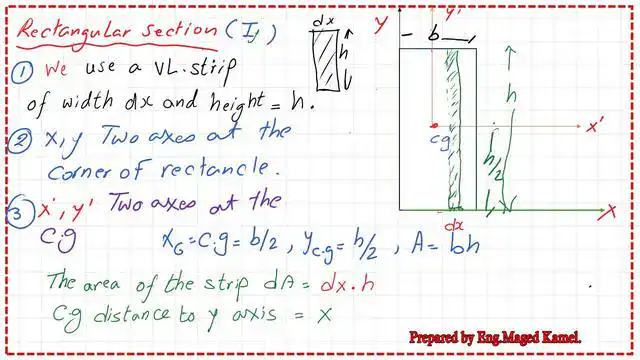 Rectangular section (Iy)
① We use a VL.strip
of width dx and height = h.
② x, y Two axes at the
corner of rectancle.
③ x', y' Two axes at the
C.g
xG = C.g = b/2, yc.g = h/2, A = bh
The area of the strip dA = dx.h
Cg distance to y axis = x
dx
h
y
y'
b
h
x'
cg
h/2
x
dx
Prepared by Eng.Maged Kamel.